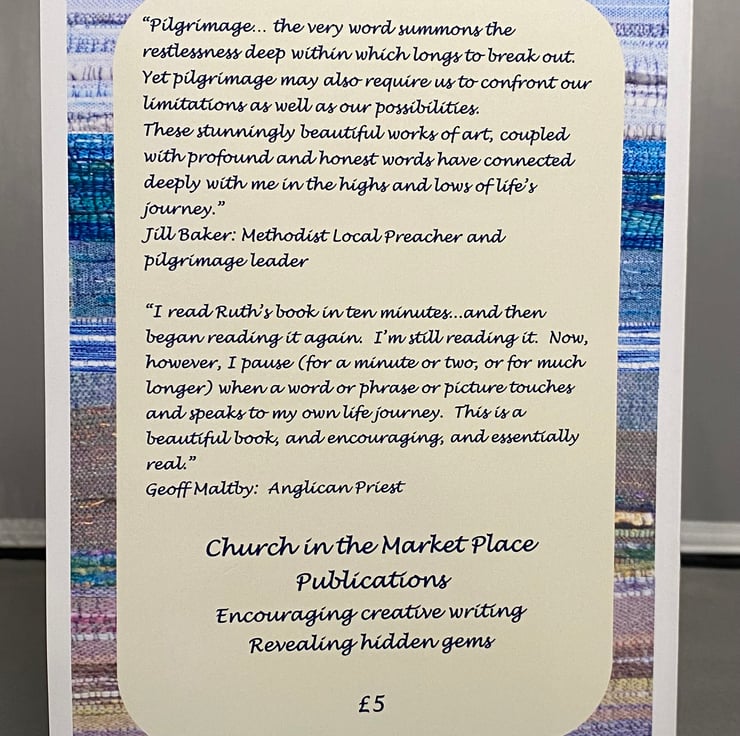 “Pilgrimage... the very word summons the
restlessness deep within which longs to break out.
Yet pilgrimage may also require us to confront our
limitations as well as our possibilities.
These stunningly beautiful works of art, coupled
with profound and honest words have connected
deeply with me in the highs and lows of life’s
journey.”
Jill Baker: Methodist Local Preacher and
pilgrimage leader
“I read Ruth’s book in ten minutes...and then
began reading it again. I’m still reading it. Now,
however, I pause (for a minute or two, or for much
longer) when a word or phrase or picture touches
and speaks to my own life journey. This is a
beautiful book, and encouraging, and essentially
real.”
Geoff Maltby: Anglican Priest
Church in the Market Place
Publications
Encouraging creative writing
Revealing hidden gems
£5